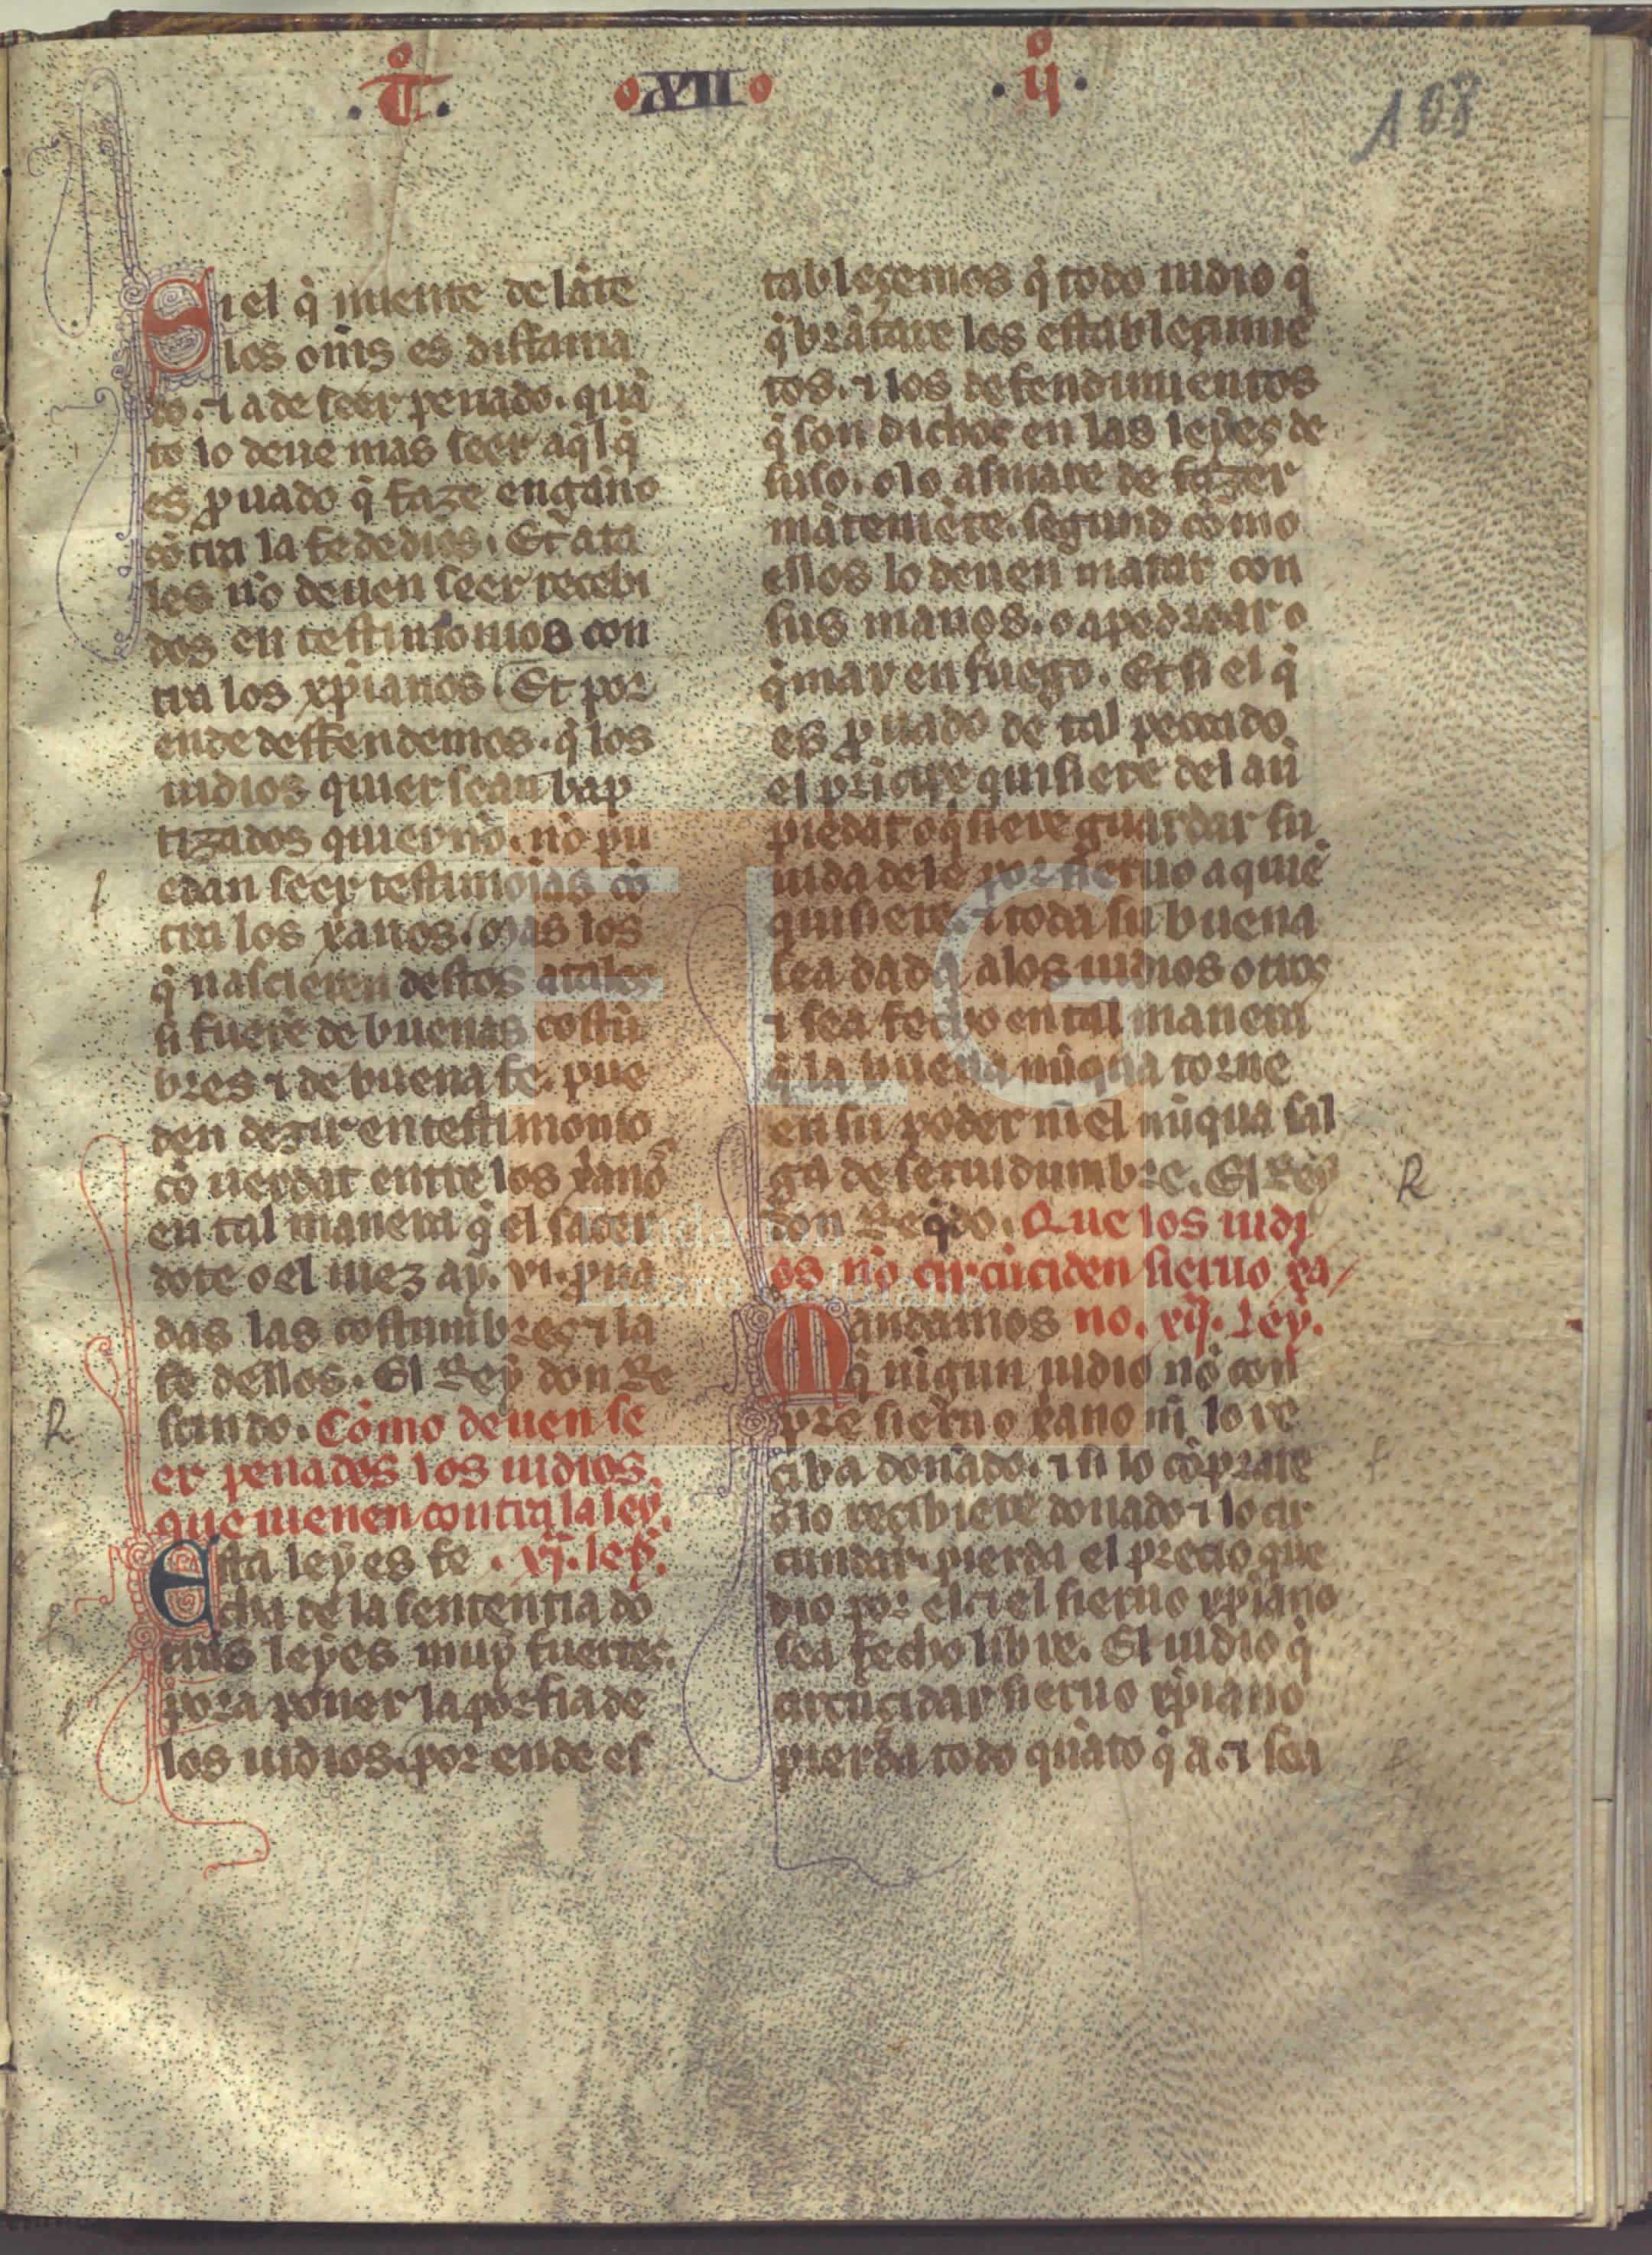 .T̊. .XII. .ij̊.
108
Si el q̇ miente delãte
los om̃s es diffama
do. ⁊ a de seer penado. quã
to lo deue mas seer aq̇l q̇
es ꝓuado q̇ faze engaño
cõtra la fe de dios. Et ata
les nõ deuen seer recebi
dos en testimonios con
tra los xp̃ianos. Et por
ende deffendemos. q̇ los
iudios quier sean bap
tizados quier nõ. nõ pu
edan seer testimoĩas cõ
tra los xãnos. mas los
q̇ nascieren destos atales
si fuerẽ de buenas costũ
bres ⁊ de buena fe. pue
den dezir en testimonio
cõ uerdat entre los xãnos
en tal manera q̇ el sacer
dote o el iuez ay. prua
das las costumbres ⁊ la
fe dellos. El Rey don Re
scindo. Cõmo deuen se
er penados los iudios
que uienen contra la ley.
Esta ley es fe . xj. ley.
cha de la sententia do
tras leyes muy fuertes.
pora poner la porfia de
los iudios. por ende es
tableçemos q̇ todo iudio q̇
q̇brãtare los establecimiẽ
tos. ⁊ los defendimientos
q̇ son dichos en las leyes de
suso. o lo asmare de fazer
mãteniẽte. segund cõmo
ellos lo deuen matar con
sus manos. o apedrear o
q̇mar en fuego. Et si el q̇
es ꝓuado de tal peccado
el prĩcipe quisiere del aũ
piedat o q̇siere guardar su
uida dele por sieruo a quiẽ
quisiere. ⁊ toda su buena
sea dada a los iudios otros
⁊ sea fecho en tal manera
q̇ la buena nũqua torne
en su poder nĩ el nũqua sal
ga de seruidumbre. El Rey
R
don Reçido. Que los iudi
os nõ circũciden sieruo xa
Mandamos no. xij. Ley.
q̇ nĩgun iudio nõ con
pre sieruo xãno nĩ lo re
ciba donado. ⁊ si lo cõprare
o lo reçibiere donado ⁊ lo cir
cũcidar. pierda el precio que
dio por el. ⁊ el sieruo xp̃iano
sea fecho libre. El iudio q̇
circũcidar sieruo xp̃iano
pierda todo quãto q̇ a. ⁊ sea
R
FLG
Fundación
Lázaro Galdiano